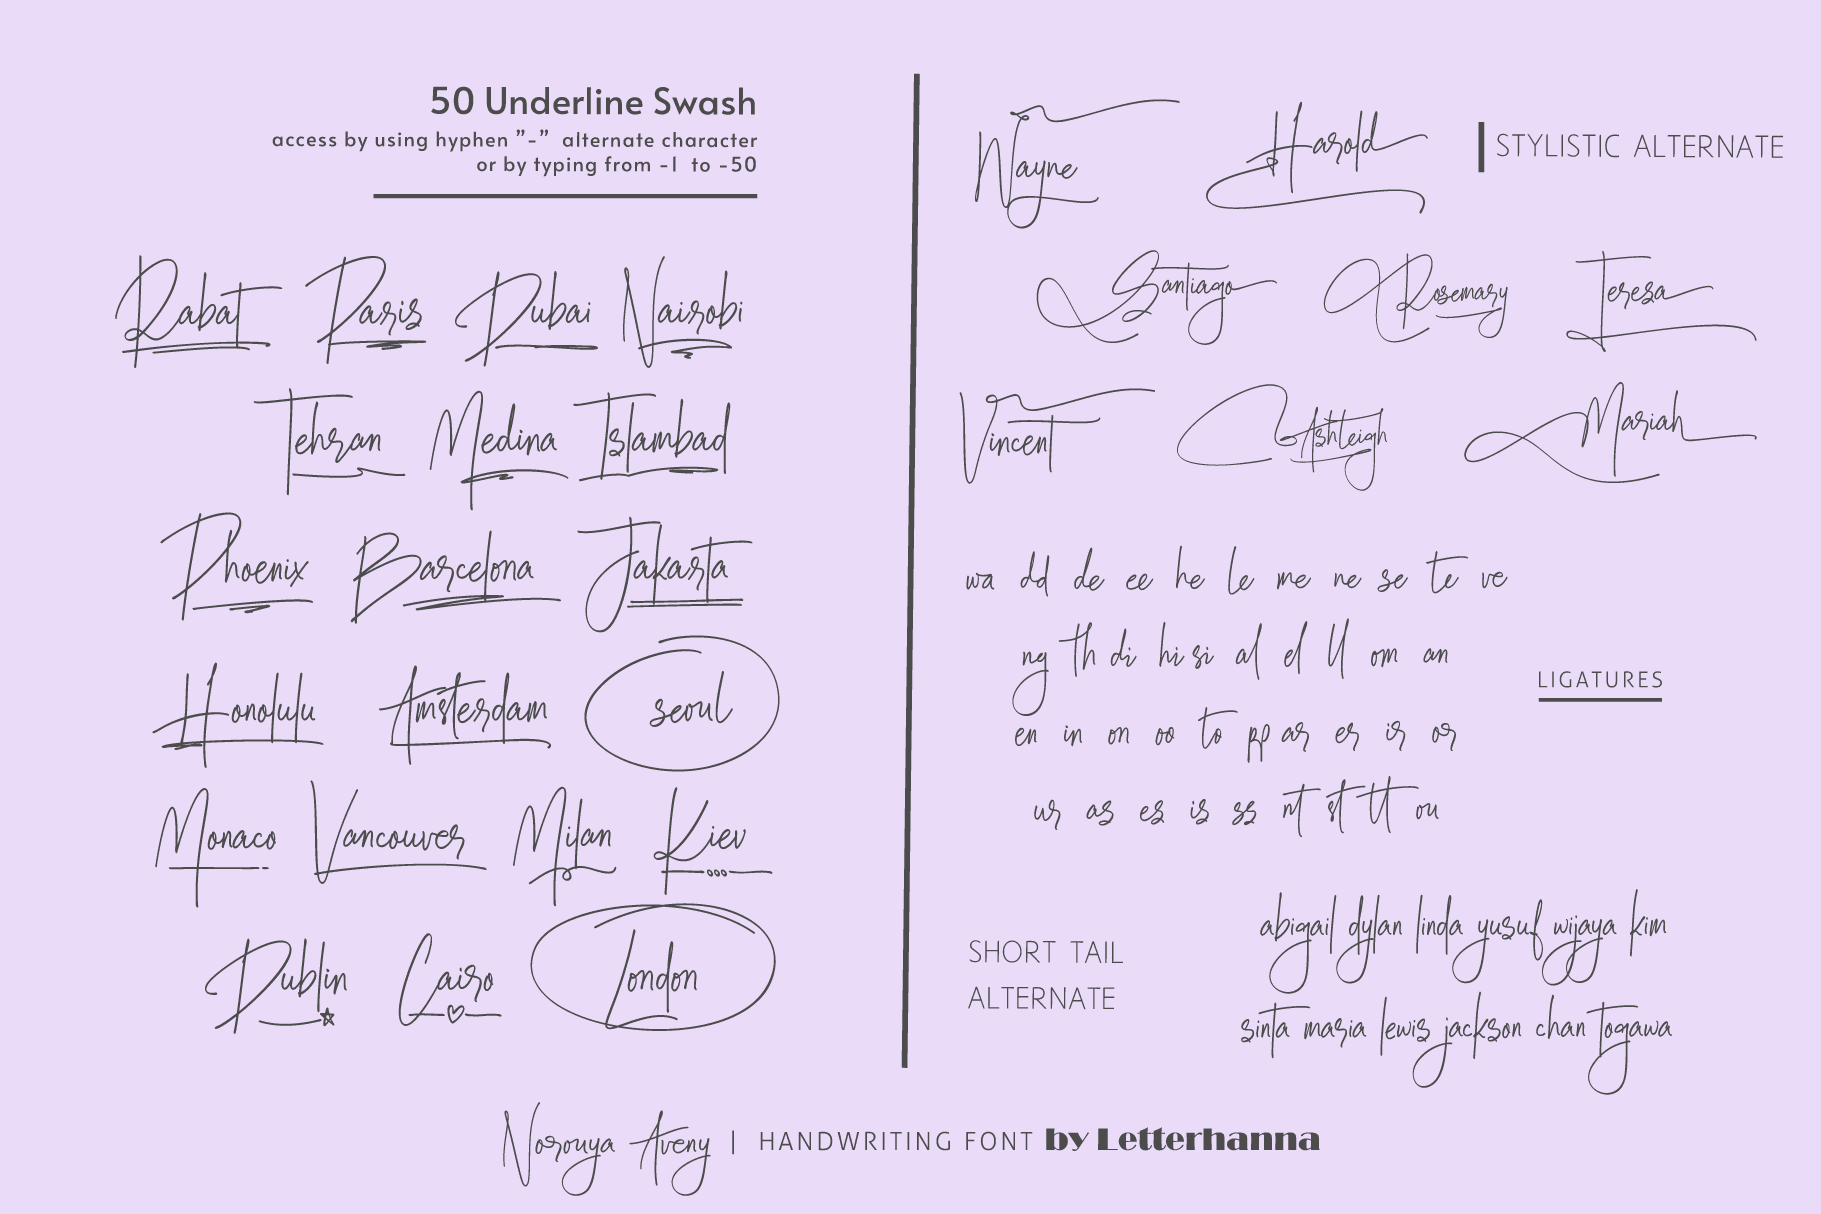 50 Underline Swash
access by using hyphen ”-” alternate character
or by typing from -1 to -50
Rabat Paris Dubai Nairobi
Tehran Medina Islambad
Phoenix Barcelona Jakarta
Honolulu Amsterdam seoul
Monaco Vancouver Milan Kiev
Dublin Cairo London
Wayne Harold
STYLISTIC ALTERNATE
Santiago Rosemary Teresa
Vincent Ashleigh Mariah
wa dd de ee he le me ne se te ve
ng th di hi si al el ll om an
LIGATURES
en in on oo to pp ar er ir or
ur as es is ss nt st tt ou
SHORT TAIL
ALTERNATE
abigail dylan linda yusuf wijaya kim
sinta maria lewis jackson chan togawa
Norouya Aveny | HANDWRITING FONT by Letterhanna